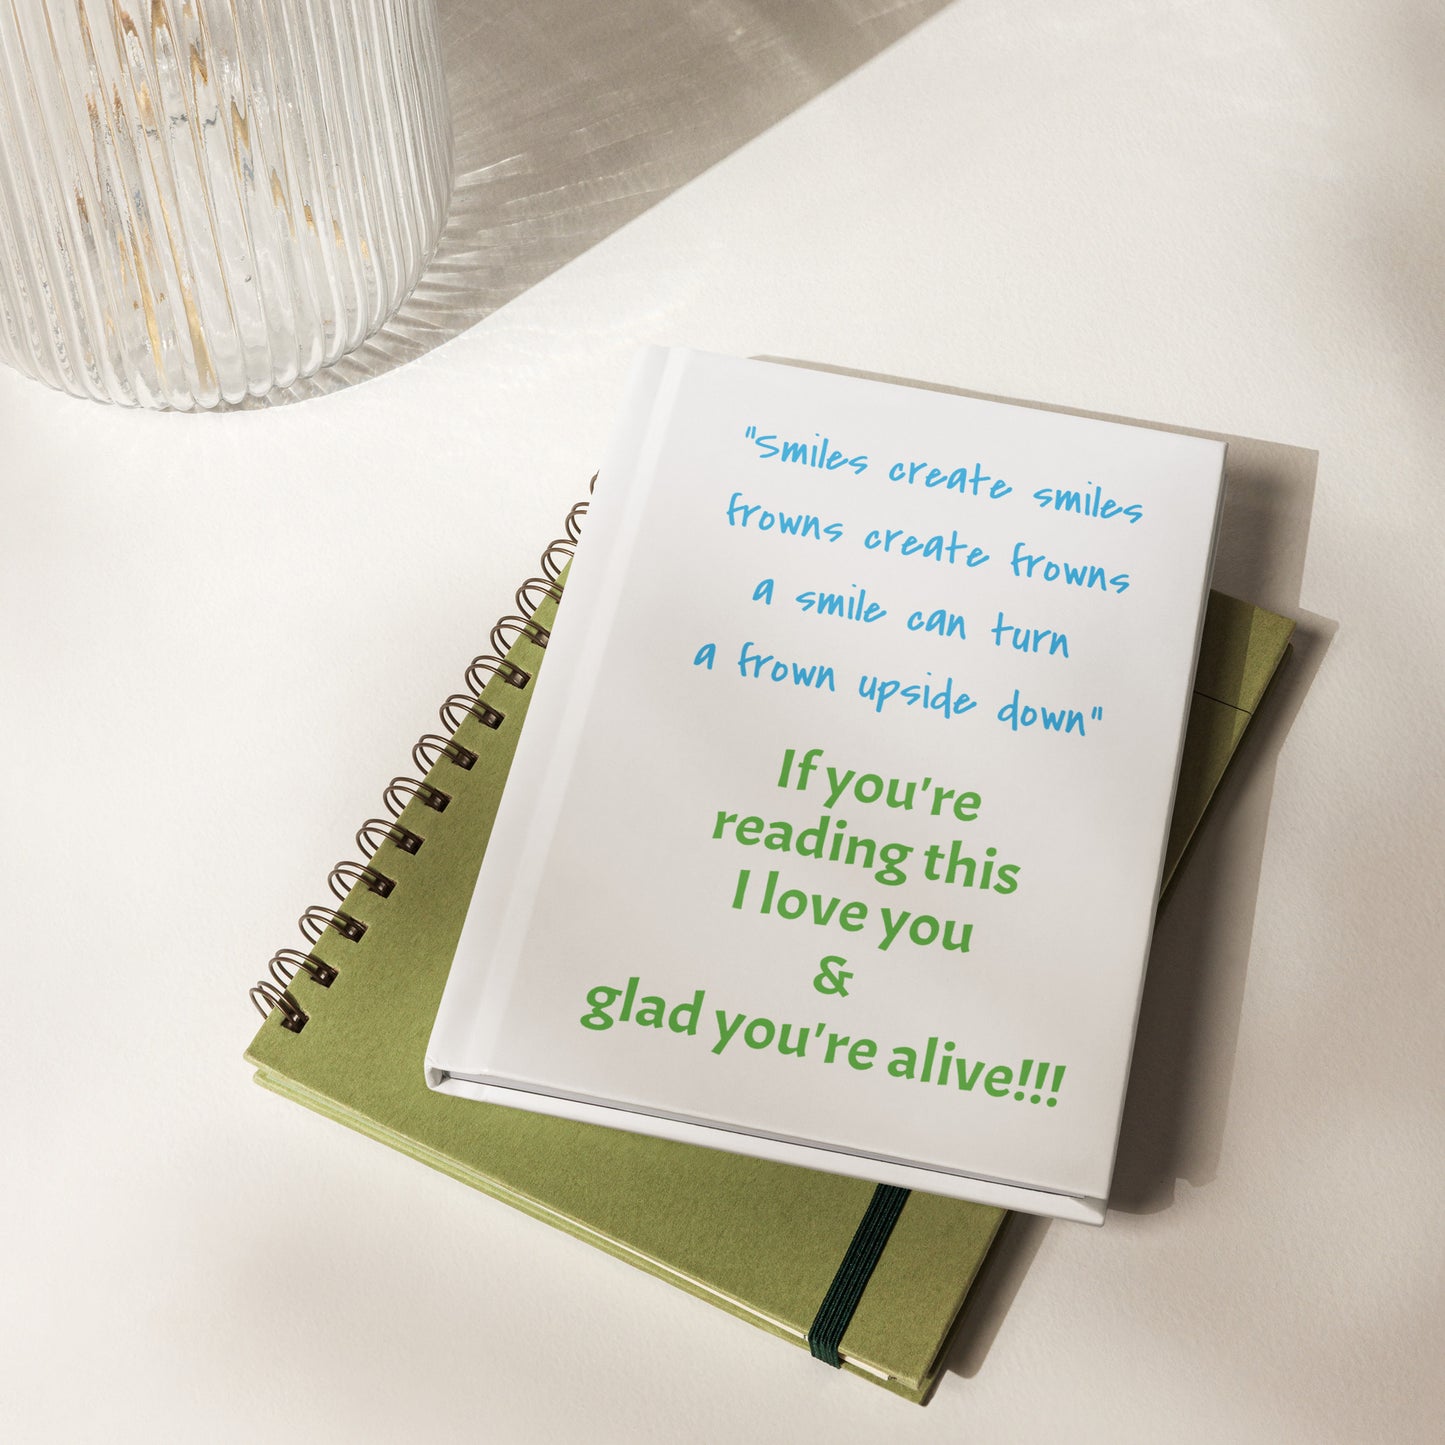 "Smiles create smiles
frowns create frowns
a smile can turn
a frown upside down"
If you're
reading this
I love you
&
glad you're alive!!!